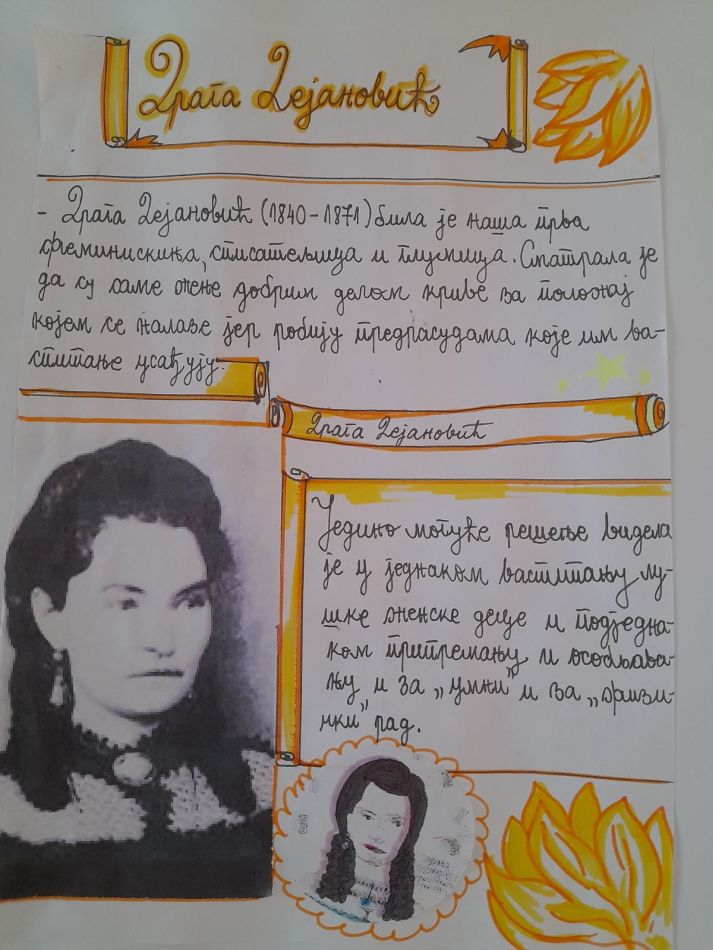 Драга Дејановић
- Драга Дејановић (1840-1871) била је наша прва
феминискиња, списатељица и глумица. Сматрала је
да су саме жене добрим делом криве за положај
којем се налазе јер робију предрасудама које им ва-
спитање усађују.
Драга Дејановић
Једино могуће решење видела
је у једнаком васпитању му-
шке женске деце и подједна-
ком припремању и особљава-
њу и за „умни" и за „физи-
чки" рад.